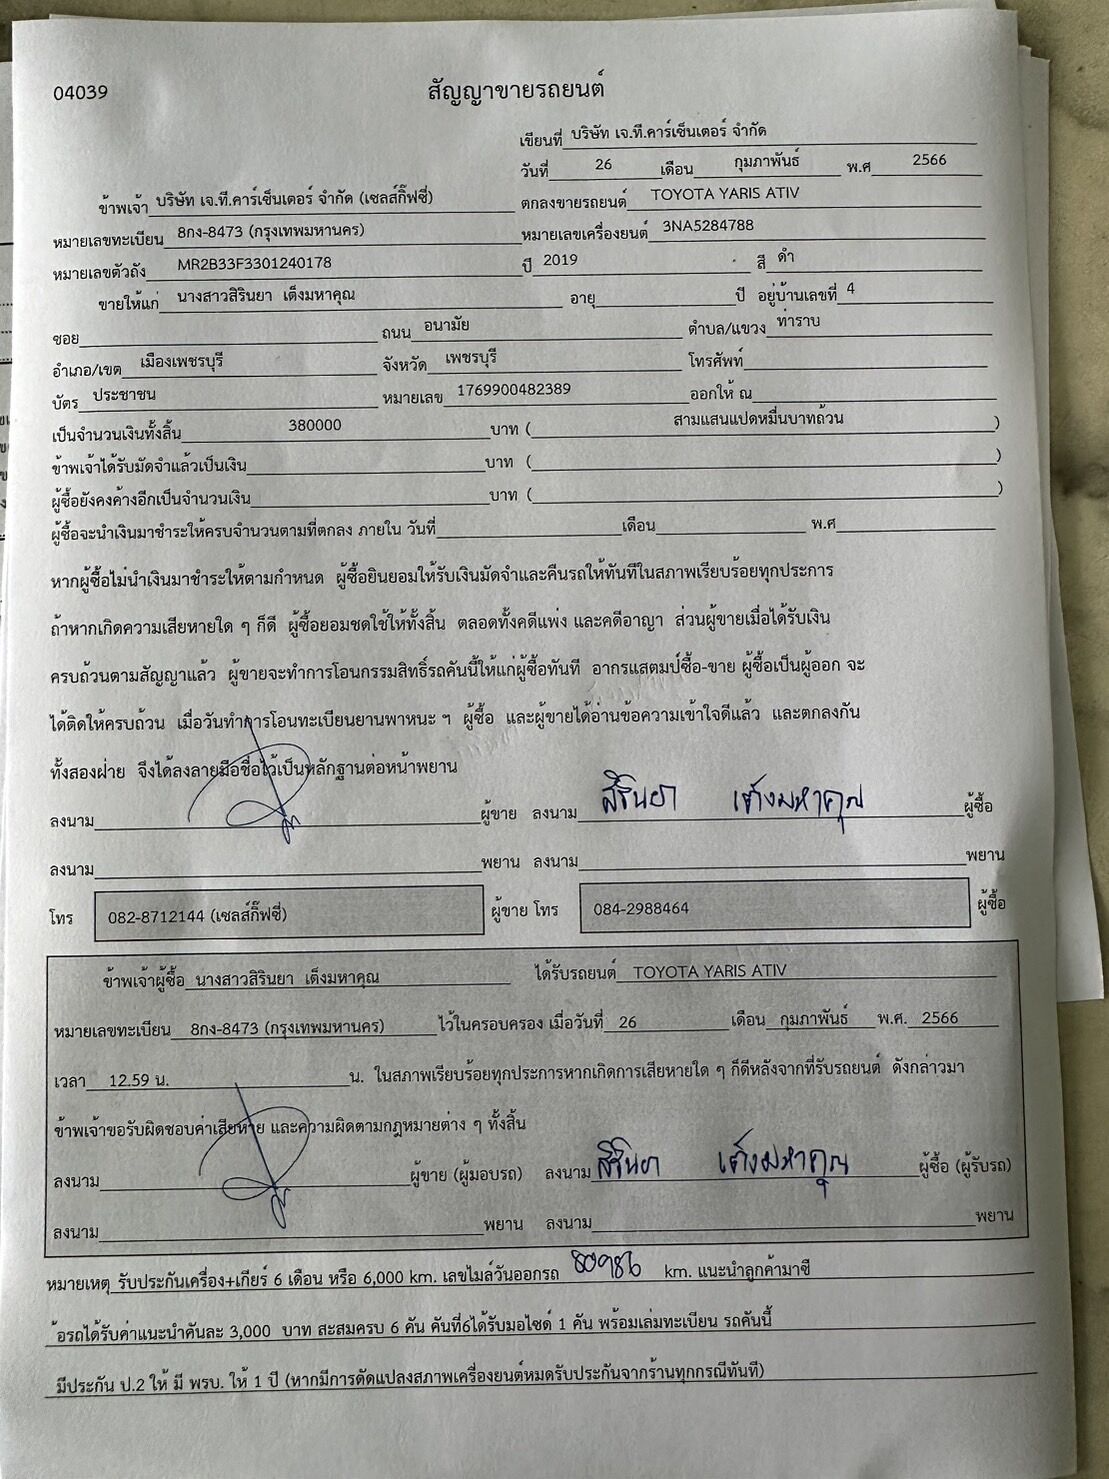 04039
สัญญาขายรถยนต์
เขียนที่ บริษัท เจ.ที.คาร์เซ็นเตอร์ จำกัด
วันที่ 26 เดือน กุมภาพันธ์ พ.ศ 2566
ข้าพเจ้า บริษัท เจ.ที.คาร์เซ็นเตอร์ จำกัด (เซลส์กิ๊ฟซี่) ตกลงขายรถยนต์ TOYOTA YARIS ATIV
หมายเลขทะเบียน 8กง-8473 (กรุงเทพมหานคร) หมายเลขเครื่องยนต์ 3NA5284788
หมายเลขตัวถัง MR2B33F3301240178 ปี 2019 สี ดำ
ขายให้แก่ นางสาวสิรินยา เต็งมหาคุณ อายุ ปี อยู่บ้านเลขที่ 4
ซอย ถนน อนามัย ตำบล/แขวง ท่าราบ
อำเภอ/เขต เมืองเพชรบุรี จังหวัด เพชรบุรี โทรศัพท์
บัตร ประชาชน หมายเลข 1769900482389 ออกให้ ณ
เป็นจำนวนเงินทั้งสิ้น 380000 บาท ( สามแสนแปดหมื่นบาทถ้วน )
ข้าพเจ้าได้รับมัดจำแล้วเป็นเงิน บาท ( )
ผู้ซื้อยังคงค้างอีกเป็นจำนวนเงิน บาท ( )
ผู้ซื้อจะนำเงินมาชำระให้ครบจำนวนตามที่ตกลง ภายใน วันที่ เดือน พ.ศ
หากผู้ซื้อไม่นำเงินมาชำระให้ตามกำหนด ผู้ซื้อยินยอมให้ริบเงินมัดจำและคืนรถให้ทันทีในสภาพเรียบร้อยทุกประการ
ถ้าหากเกิดความเสียหายใด ๆ ก็ดี ผู้ซื้อยอมชดใช้ให้ทั้งสิ้น ตลอดทั้งคดีแพ่ง และคดีอาญา ส่วนผู้ขายเมื่อได้รับเงิน
ครบถ้วนตามสัญญาแล้ว ผู้ขายจะทำการโอนกรรมสิทธิ์รถคันนี้ให้แก่ผู้ซื้อทันที อากรแสตมป์ซื้อ-ขาย ผู้ซื้อเป็นผู้ออก จะ
ได้ติดให้ครบถ้วน เมื่อวันทำการโอนทะเบียนยานพาหนะ ฯ ผู้ซื้อ และผู้ขายได้อ่านข้อความเข้าใจดีแล้ว และตกลงกัน
ทั้งสองฝ่าย จึงได้ลงลายมือชื่อไว้เป็นหลักฐานต่อหน้าพยาน
ลงนาม ผู้ขาย ลงนาม สิรินยา เต็งมหาคุณ ผู้ซื้อ
ลงนาม พยาน ลงนาม พยาน
โทร 082-8712144 (เซลส์กิ๊ฟซี่) ผู้ขาย โทร 084-2988464 ผู้ซื้อ
ข้าพเจ้าผู้ซื้อ นางสาวสิรินยา เต็งมหาคุณ ได้รับรถยนต์ TOYOTA YARIS ATIV
หมายเลขทะเบียน 8กง-8473 (กรุงเทพมหานคร) ไว้ในครอบครอง เมื่อวันที่ 26 เดือน กุมภาพันธ์ พ.ศ. 2566
เวลา 12.59 น. น. ในสภาพเรียบร้อยทุกประการหากเกิดการเสียหายใด ๆ ก็ดีหลังจากที่รับรถยนต์ ดังกล่าวมา
ข้าพเจ้าขอรับผิดชอบค่าเสียหาย และความผิดตามกฎหมายต่าง ๆ ทั้งสิ้น
ลงนาม ผู้ขาย (ผู้มอบรถ) ลงนาม สิรินยา เต็งมหาคุณ ผู้ซื้อ (ผู้รับรถ)
ลงนาม พยาน ลงนาม พยาน
หมายเหตุ รับประกันเครื่อง+เกียร์ 6 เดือน หรือ 6,000 km. เลขไมล์วันออกรถ 80986 km. แนะนำลูกค้ามาซื
้อรถได้รับค่าแนะนำคันละ 3,000 บาท สะสมครบ 6 คัน คันที่6ได้รับมอไซด์ 1 คัน พร้อมเล่มทะเบียน รถคันนี้
มีประกัน ป.2 ให้ มี พรบ. ให้ 1 ปี (หากมีการดัดแปลงสภาพเครื่องยนต์หมดรับประกันจากร้านทุกกรณีทันที)